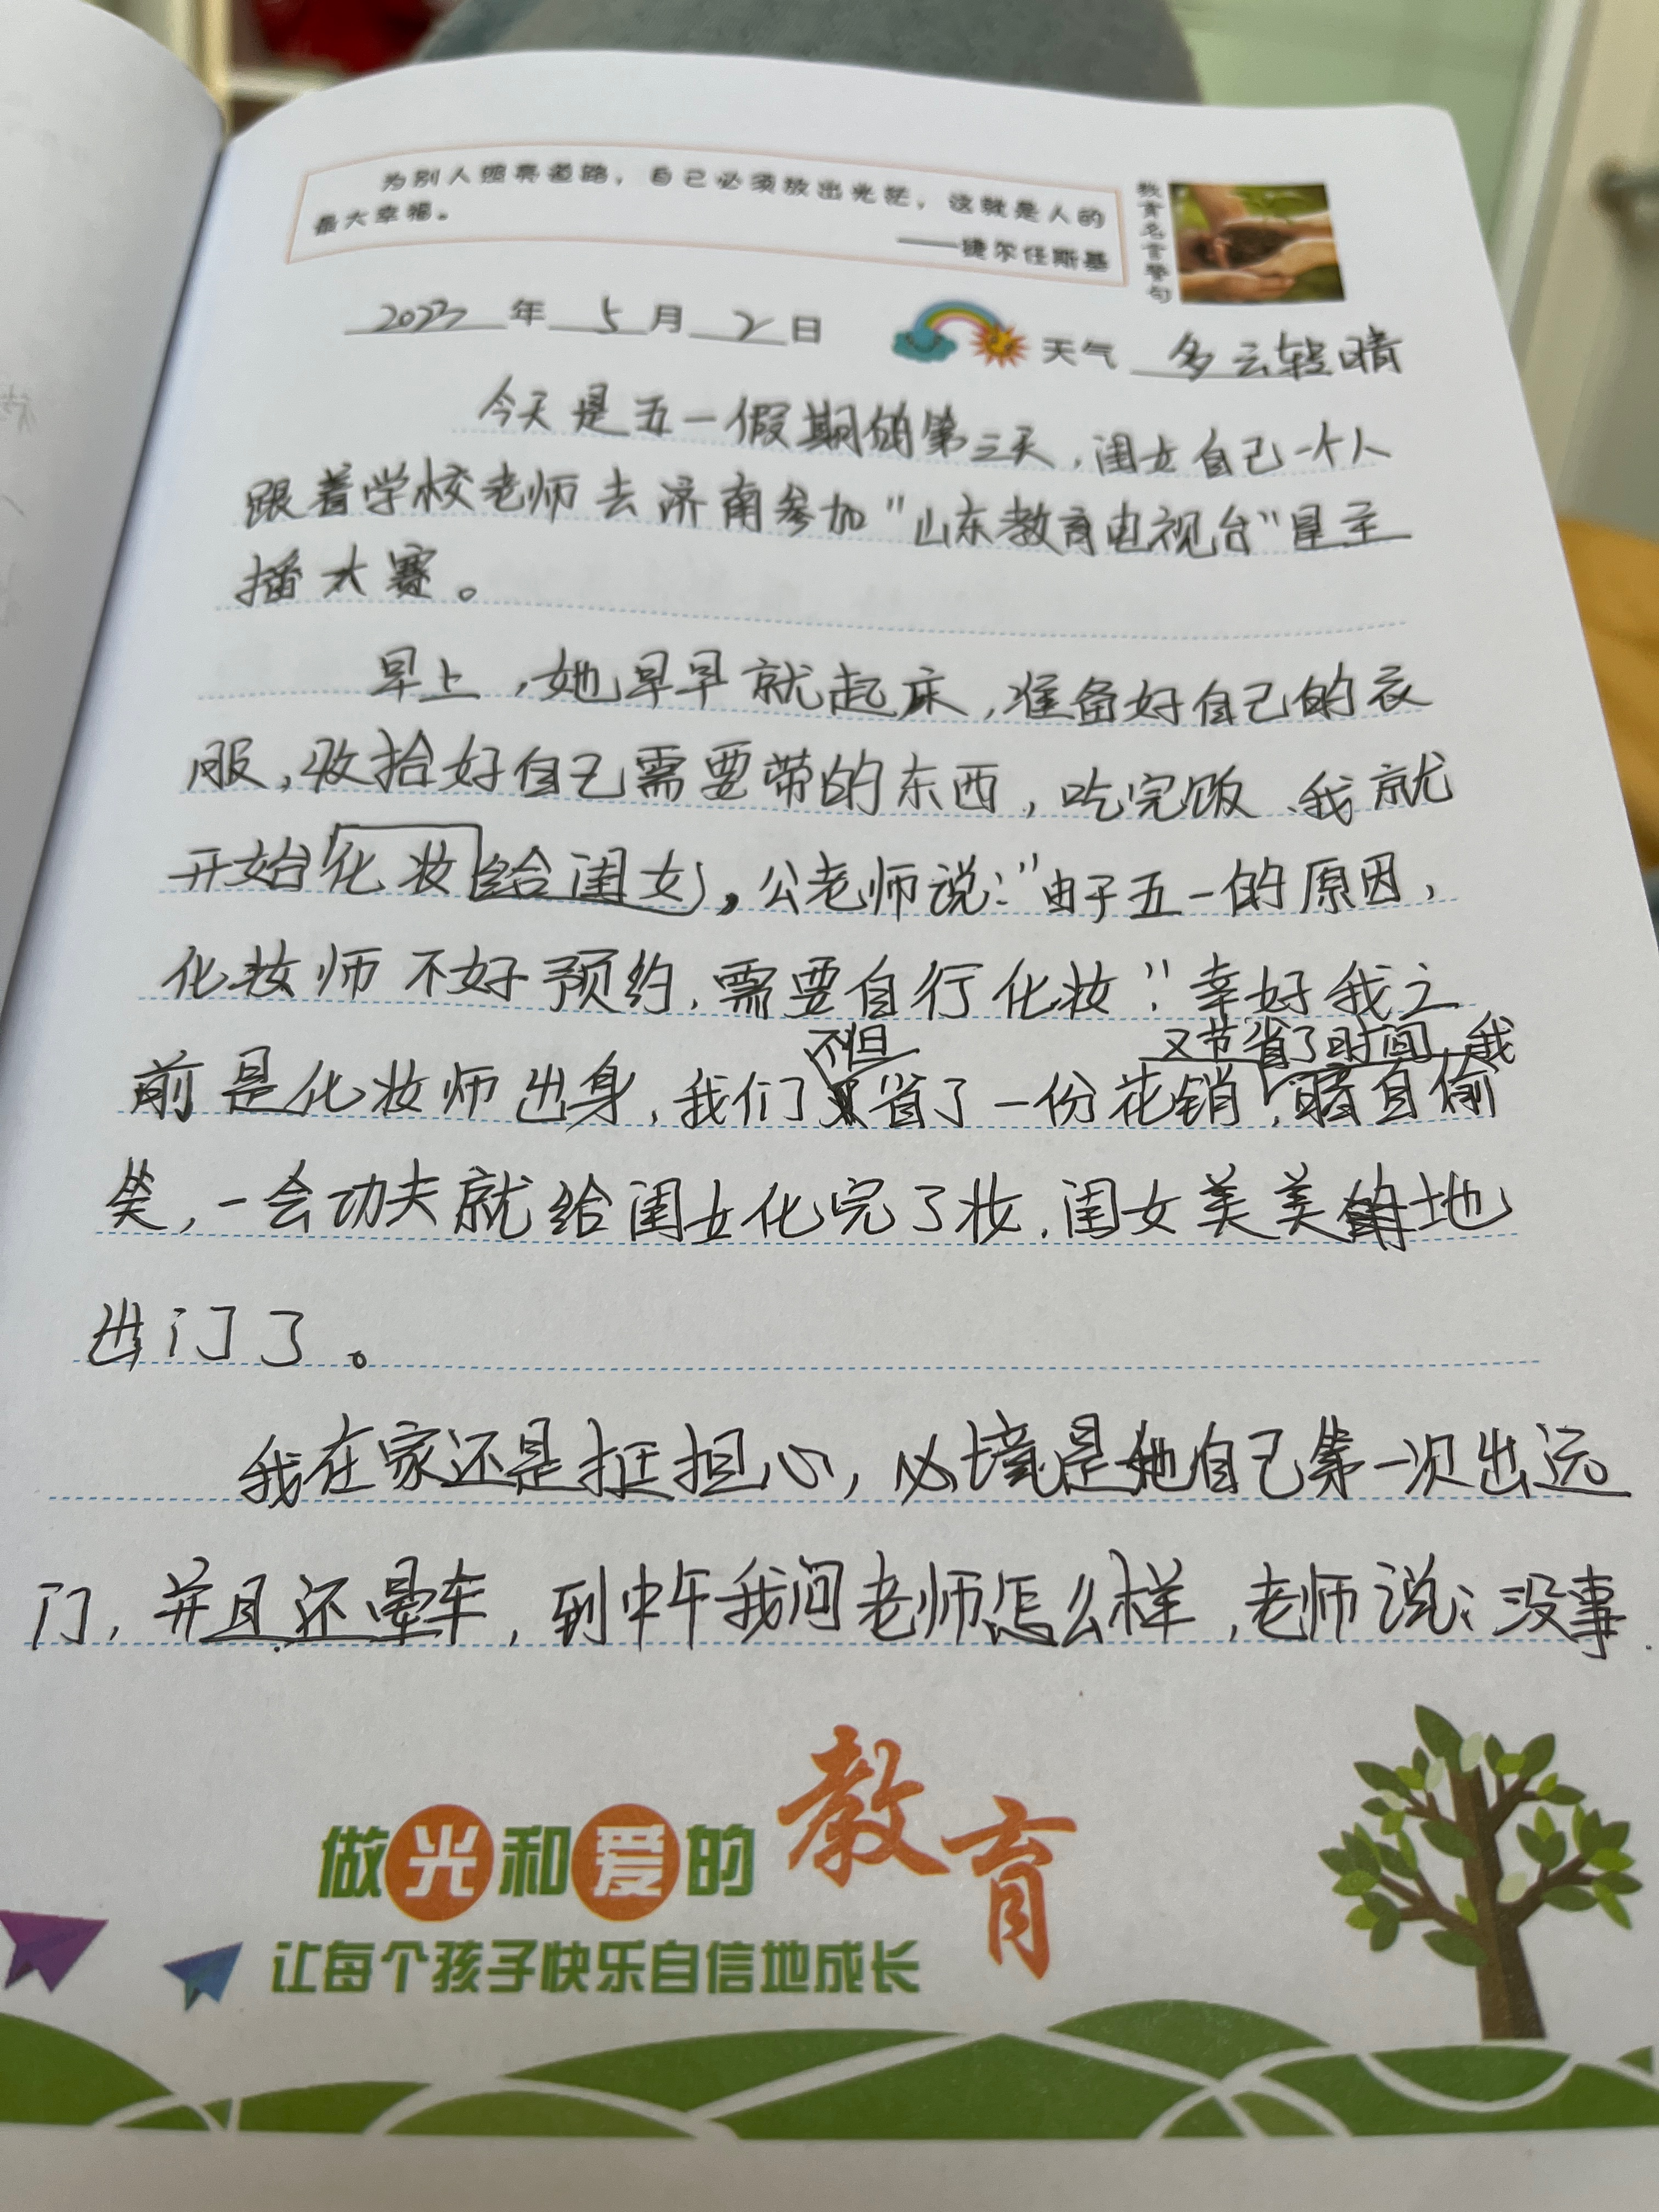 为别人照亮道路，自己必须放出光茫，这就是人的
最大幸福。
——捷尔任斯基
教育名言警句
2023年5月2日 天气 多云转晴
今天是五一假期的第三天，闺女自己一个人
跟着学校老师去济南参加"山东教育电视台"星主
播大赛。
早上，她早早就起床，准备好自己的衣
服，收拾好自己需要带的东西，吃完饭、我就
开始化妆给闺女，公老师说："由于五一的原因，
化妆师不好预约，需要自行化妆"。幸好我之
不但 又节省了时间，我
前是化妆师出身，我们省了一份花销，暗自偷
笑，一会功夫就给闺女化完了妆，闺女美美地
出门了。
我在家还是挺担心，必境是她自己第一次出远
门，并且还晕车，到中午我问老师怎么样，老师说：没事.
做光和爱的教育
让每个孩子快乐自信地成长